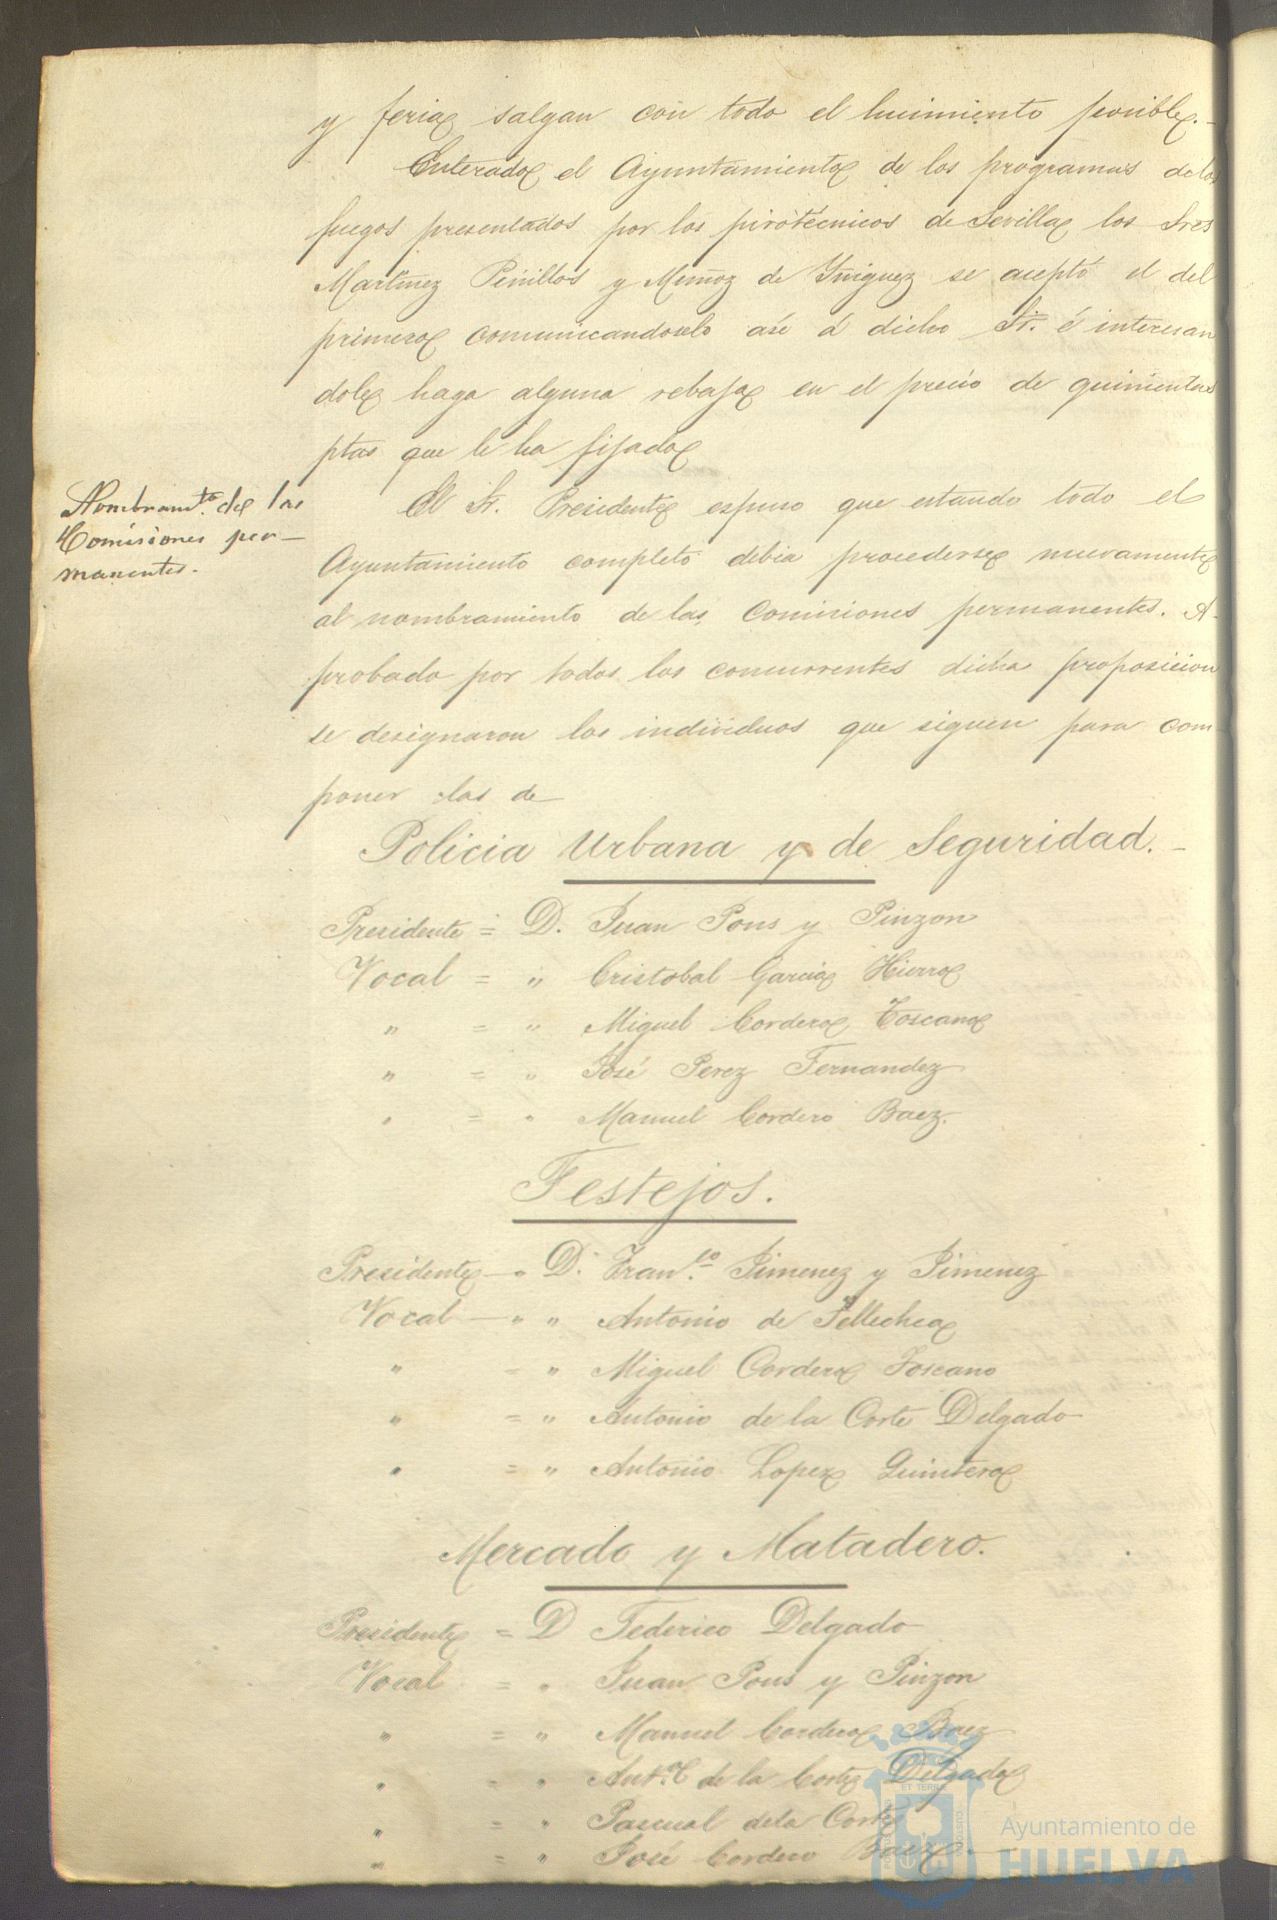 y feria salgan con todo el lucimiento posible.
Enterado el Ayuntamiento de los programas de los
fuegos presentados por los pirotécnicos de Sevilla los Sres
Martinez Penillos y Muñoz de Yñiguez se aceptó el del
primero comunicandoselo asi á dicho Sr. é interesan
dole haga alguna rebaja en el precio de quinientas
ptas que le ha fijado
Nombramto. de las
Comisiones per-
manentes.
El Sr. Presidente espuso que estando todo el
Ayuntamiento completo debia procederse nuevamente
al nombramiento de las Comisiones permanentes. A-
probado por todos los concurrentes dicha proposicion
se designaron los individuos que siguen para com
poner las de
Policia Urbana y de Seguridad. -
Presidente = D. Juan Pons y Pinzon
Vocal = " Cristobal Garcia Hierro
" = " Miguel Cordero Toscano
" = " José Perez Fernandez
" = " Manuel Cordero Baez.
Festejos.
Presidente - " D. Franco. Jimenez y Jimenez
Vocal - " " Antonio de Tellechea
" = " Miguel Cordero Toscano
" = " Antonio de la Corte Delgado
" = " Antonio Lopez Quintero
Mercado y Matadero.
Presidente = D Federico Delgado
Vocal = " Juan Pons y Pinzon
" = " Manuel Cordero Baez
" = " Ant.º de la Corte Delgado
" = " Pascual de la Corte
" = " José Cordero Baez
Ayuntamiento de
HUELVA